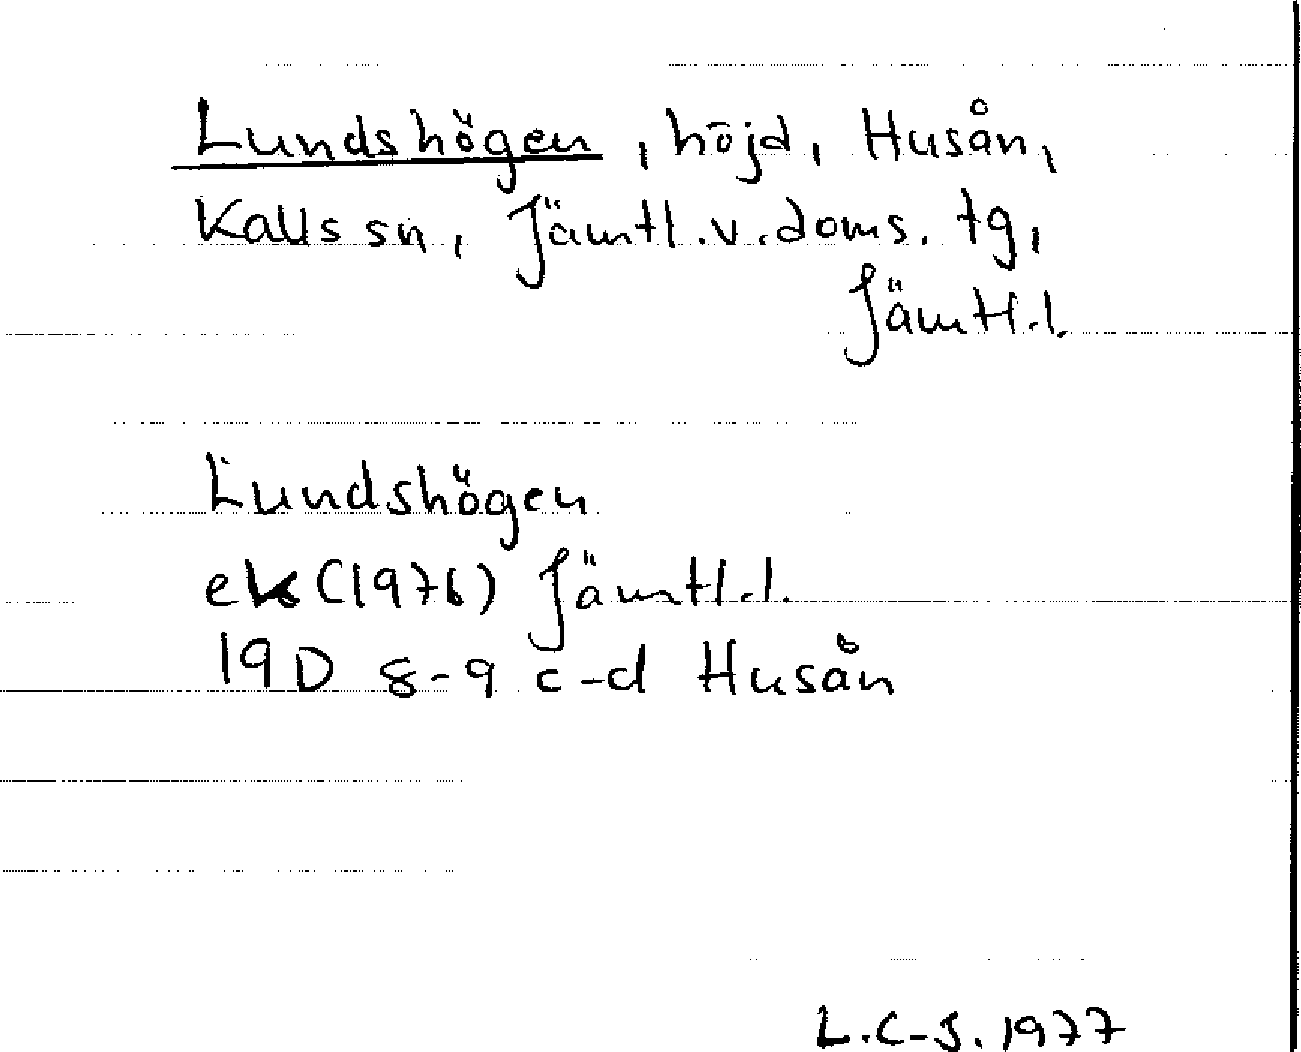 Lundshögen, höjd, Husån,
Kalls sn, Jämtl.v.doms. tg,
Jämtl.l.
Lundshögen
ek (1976) Jämtl.l.
19D 8-9 c-d Husån
L.C-S. 1977